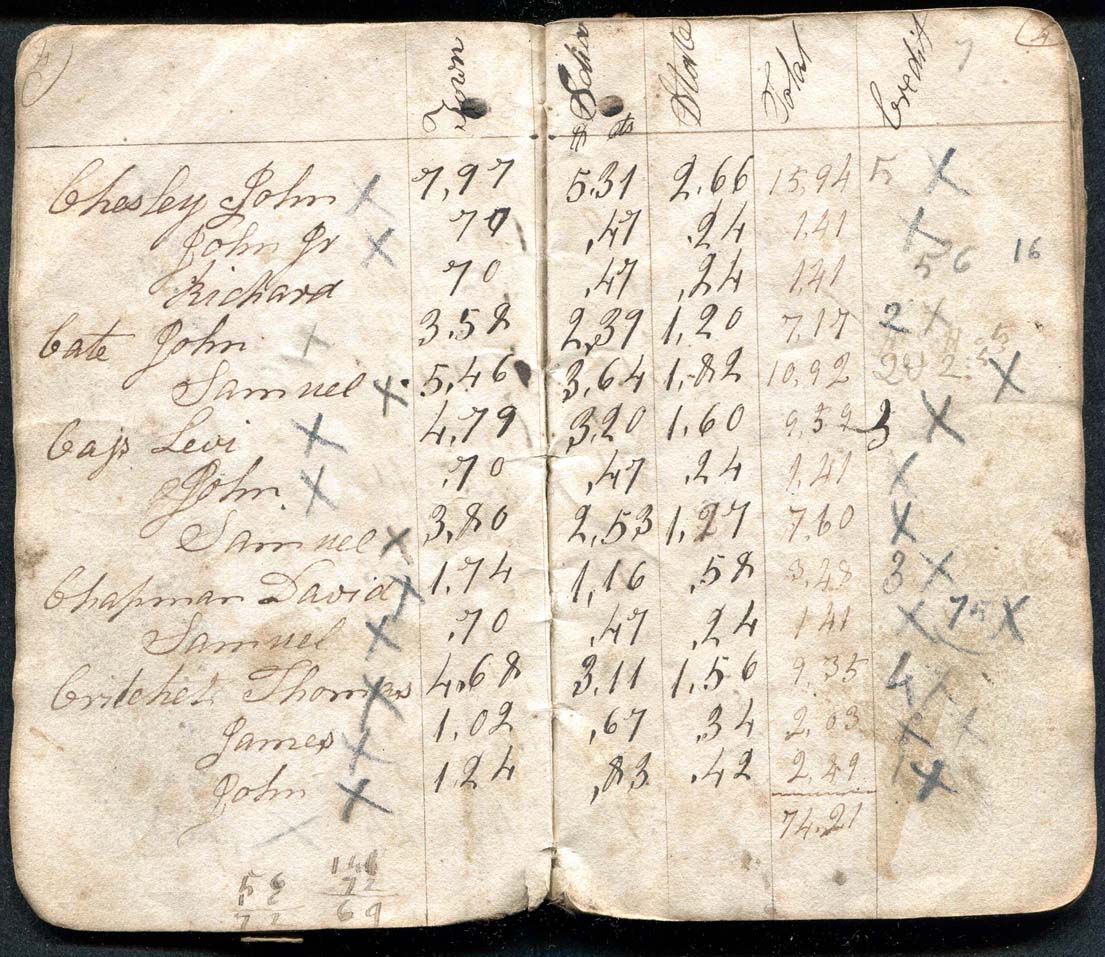 4 4
Town Scho State Total Credit 7
$ cts
Chesley John X 7,97 5.31 2.66 15,94 5 X
John Jr X 70 ,47 .24 1,41 X
Richard 70 ,47 ,24 1,41 56 16
Cate John X 3,58 2,39 1,20 7,17 2 X
Samuel X 5,46 3,64 1,82 10,92 X
Cass Levi X 4,79 3,20 1,60 9,59 3 X
John X ,70 ,47 .24 1,41 X
Samuel X 3,80 2,53 1,27 7,60 X
Chapman David X 1,74 1,16 ,58 3,48 3 X
Samuel X ,70 ,47 ,24 1 41 X 75 X
Critchet Thomas X 4,68 3,11 1,56 9,35 4 X
James X 1,02 ,67 ,34 2,03 X X
John X 1 24 ,83 .42 2,49 1 X
74,21
72
69